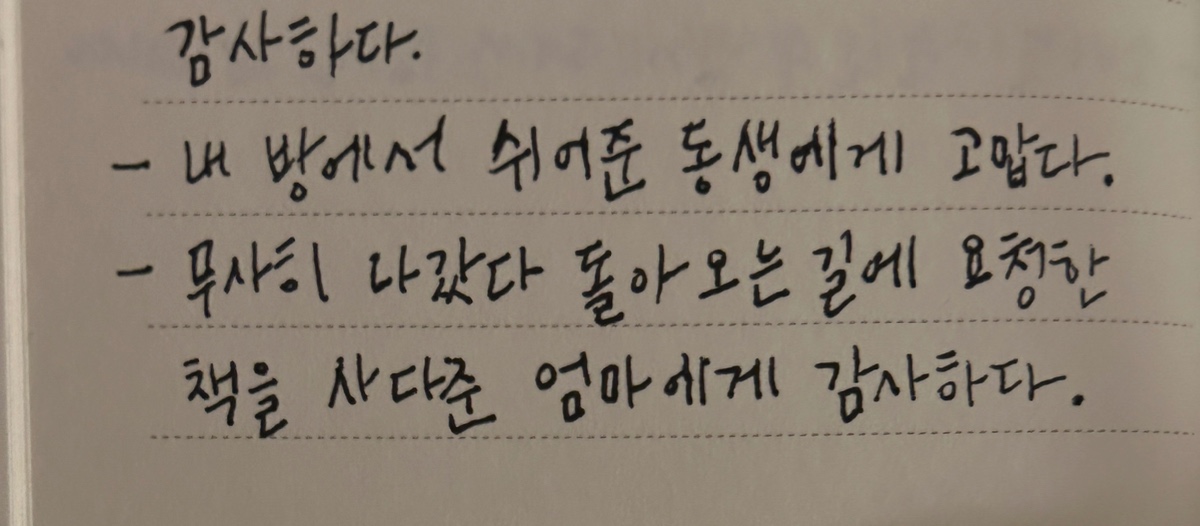 감사하다.
- 내 방에서 쉬어준 동생에게 고맙다.
- 무사히 나갔다 돌아오는 길에 요청한
책을 사다준 엄마에게 감사하다.